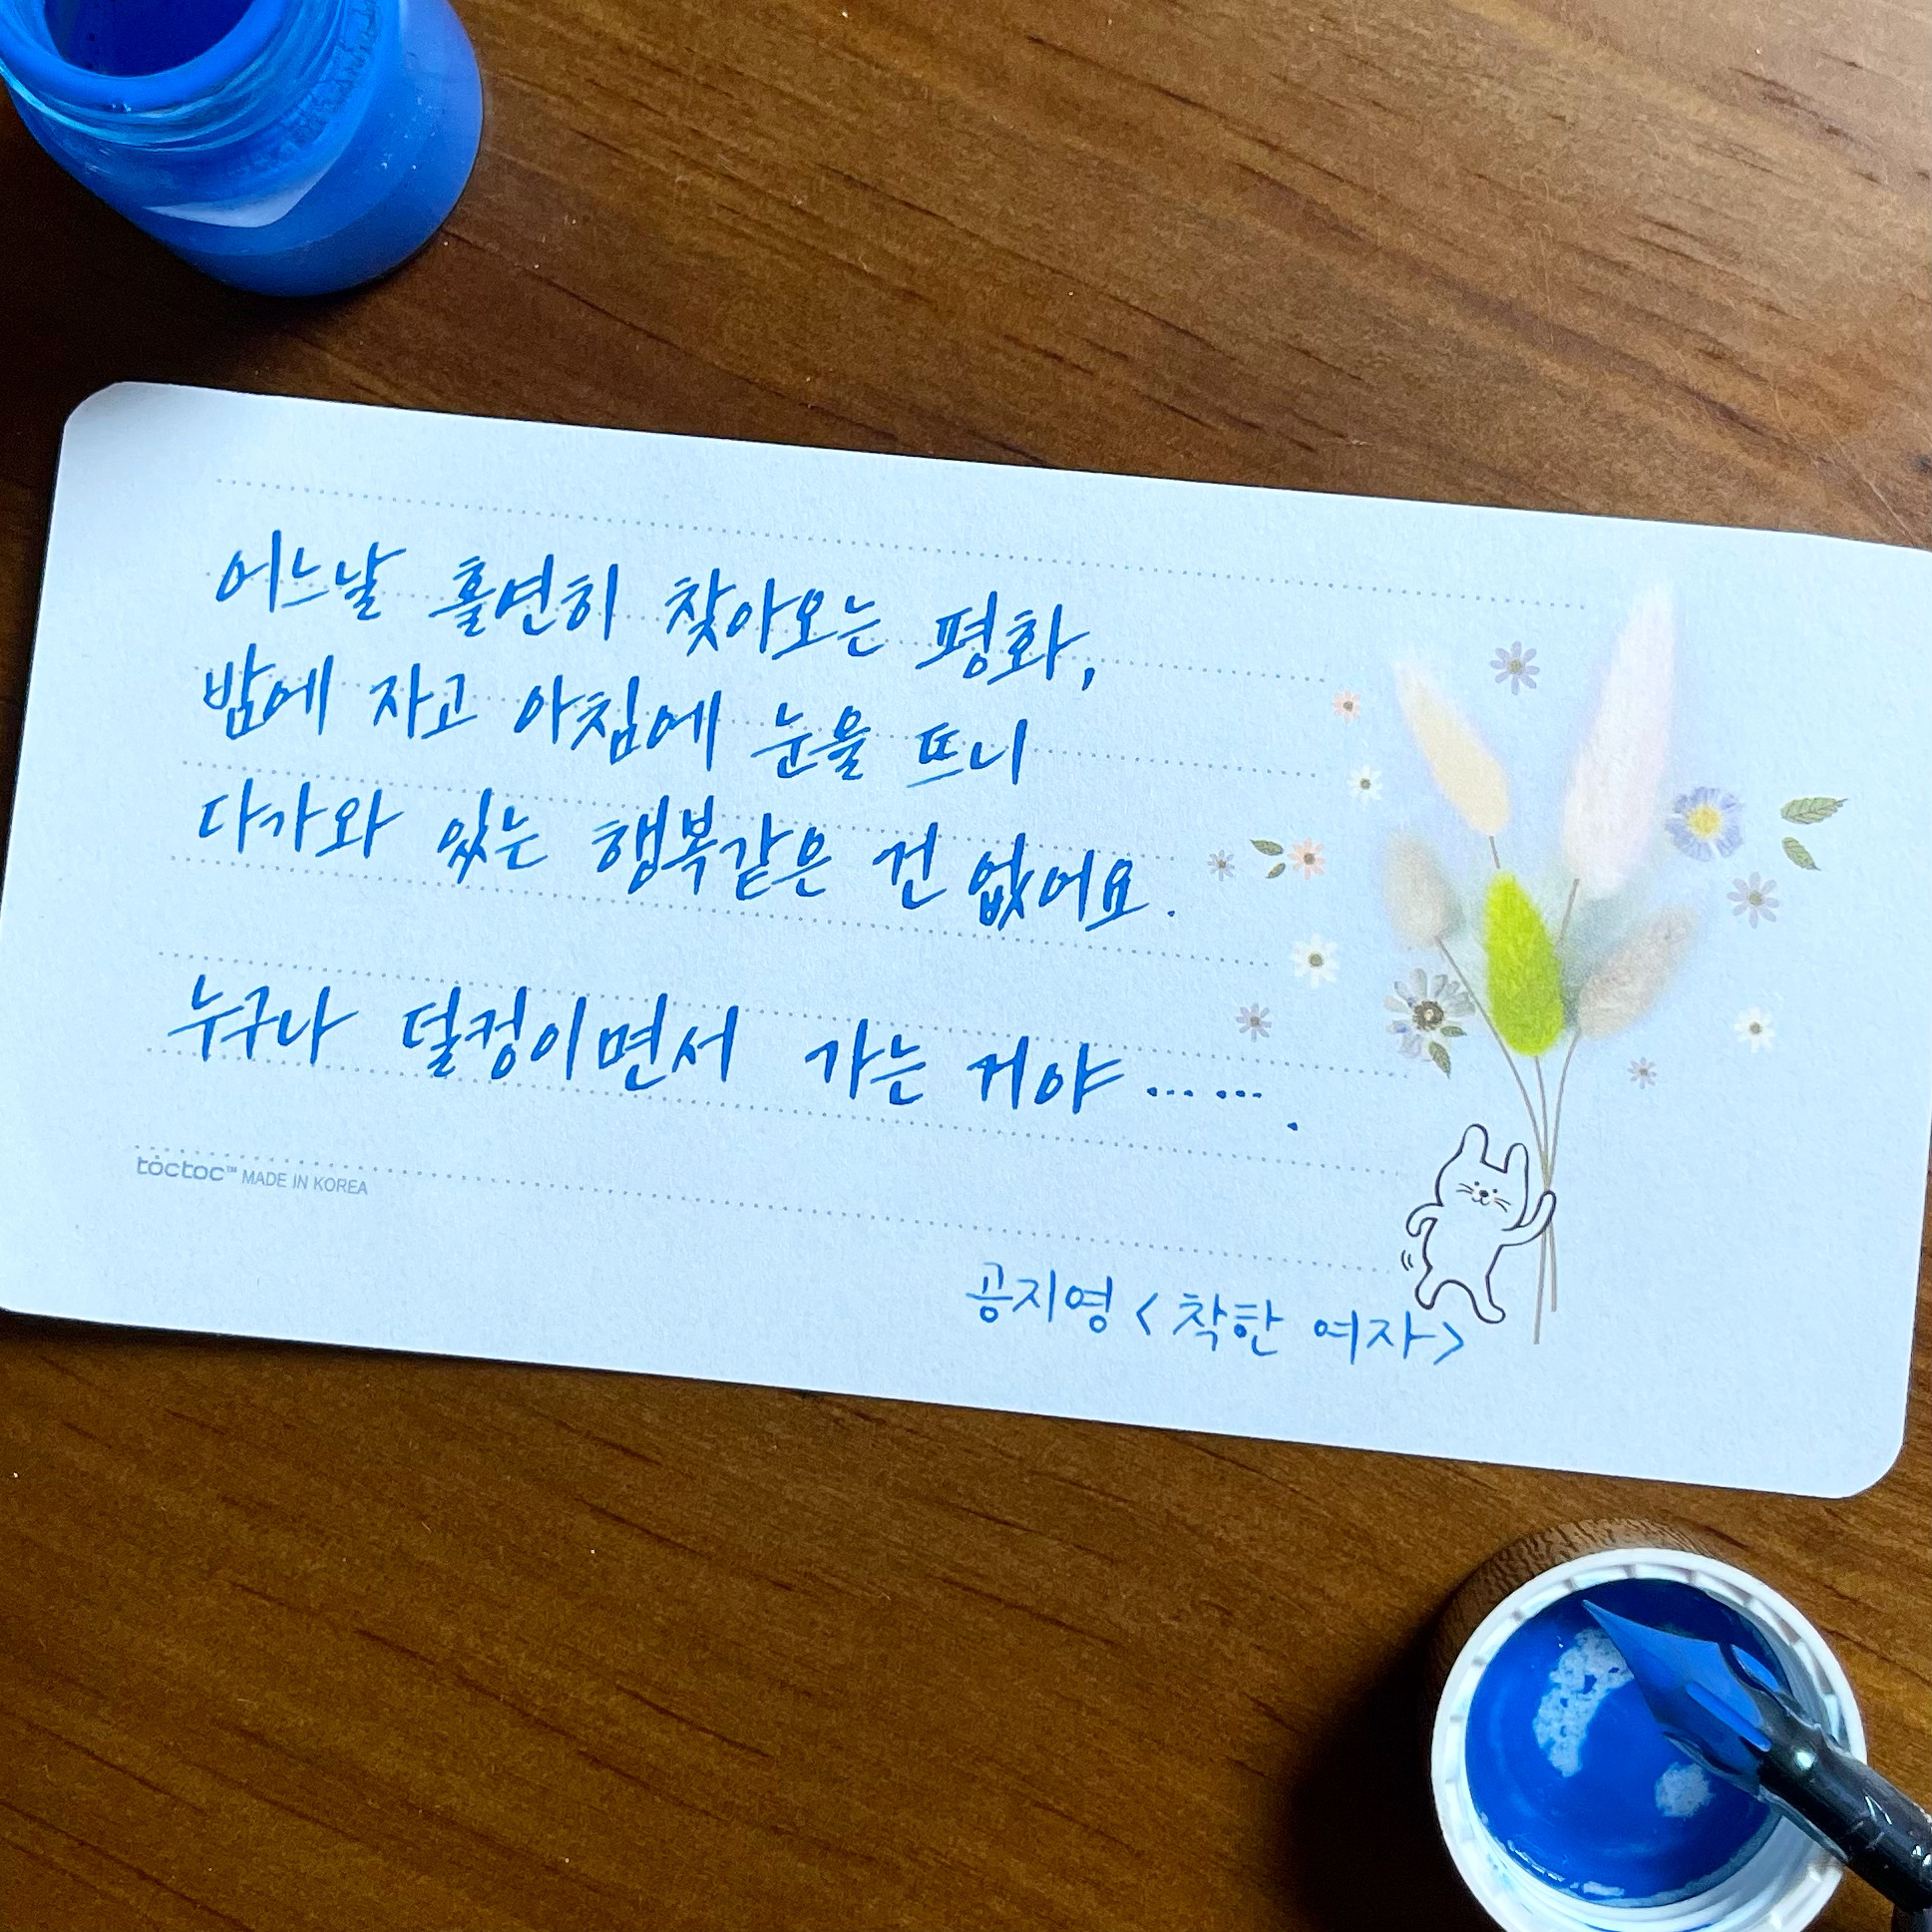 어느날 홀연히 찾아오는 평화,
밤에 자고 아침에 눈을 뜨니
다가와 있는 행복같은 건 없어요.
누구나 덜컹이면서 가는 거야…….
toctoc™ MADE IN KOREA
공지영 <착한 여자>